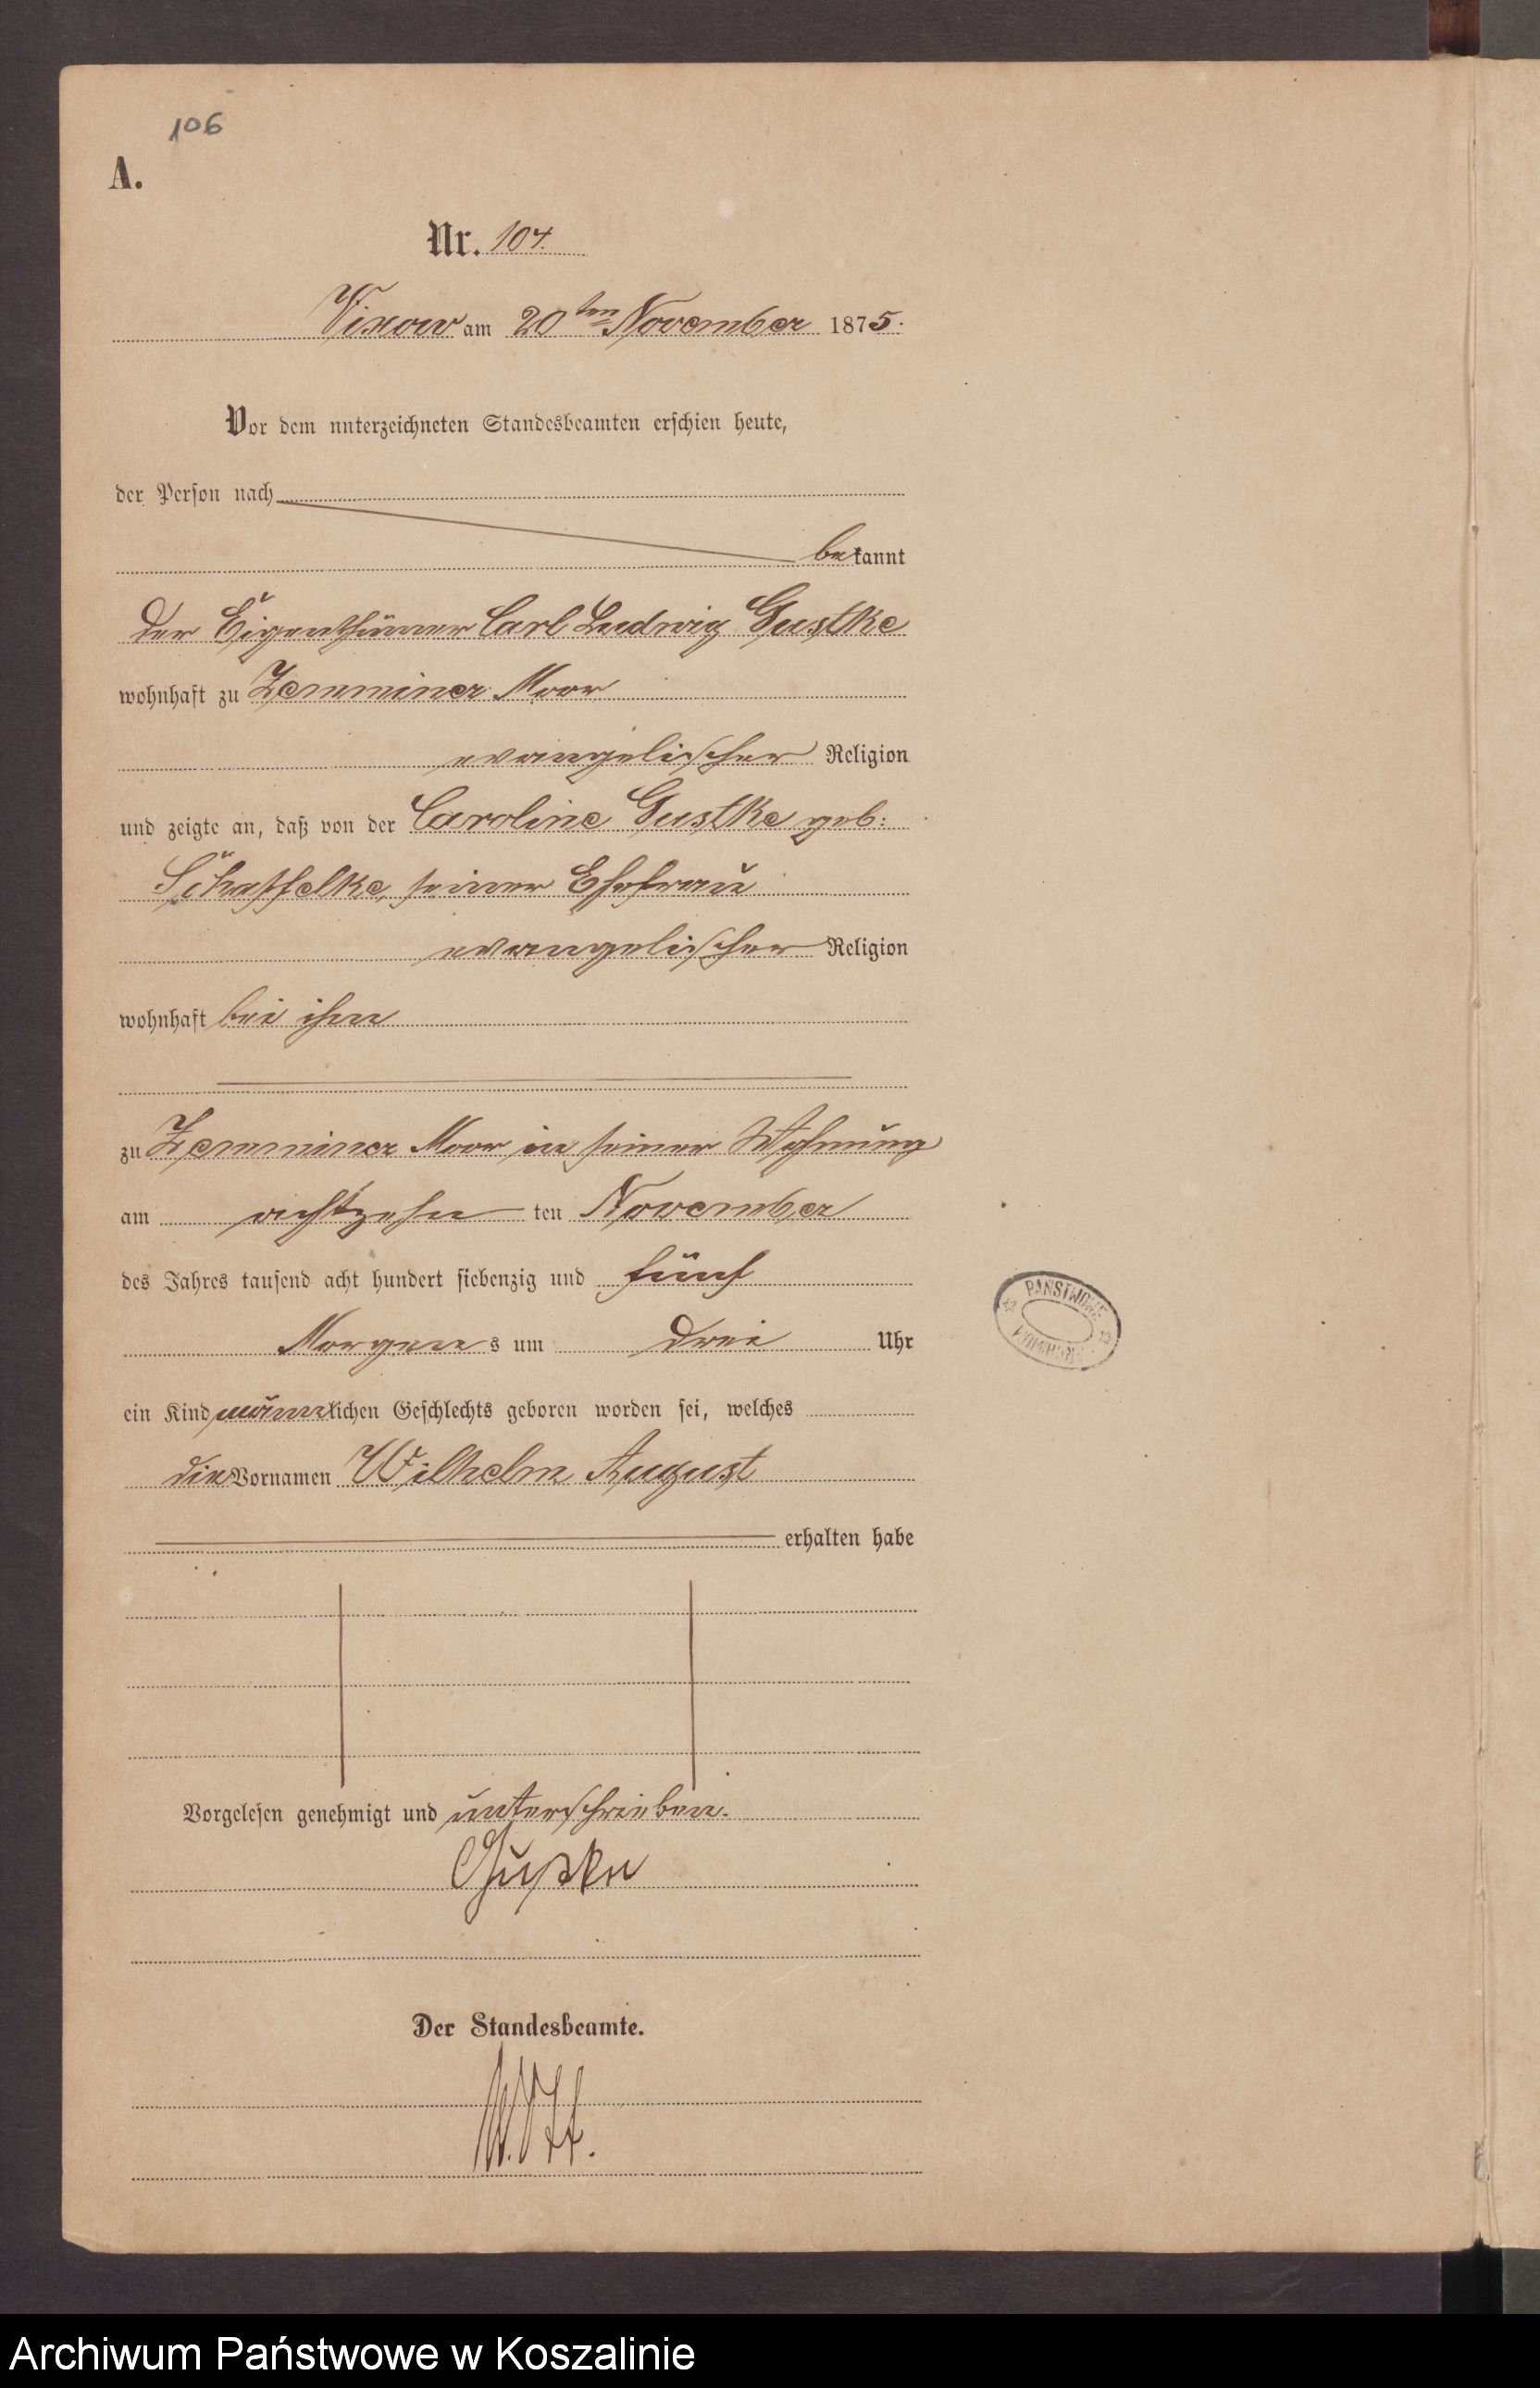 106
A.
Nr. 104.
Vixow am 20ten November 1875.
Vor dem unterzeichneten Standesbeamten erschien heute,
der Person nach
bekannt
der Eigenthümer Carl Ludwig Gustke
wohnhaft zu Zemminer Moor
evangelischer Religion
und zeigte an, daß von der Caroline Gustke geb:
seiner Ehefrau
evangelischer Religion
wohnhaft bei ihm
zu Zemminer Moor in seiner Wohnung
am achtzehn ten November
des Jahres tausend acht hundert siebenzig und fünf
Morgens um drei Uhr
ein Kind männlichen Geschlechts geboren worden sei, welches
die Vornamen Wilhelm August
erhalten habe
Vorgelesen genehmigt und unterschrieben.
Der Standesbeamte.
PAŃSTWOWE ARCHIWUM
Archiwum Państwowe w Koszalinie